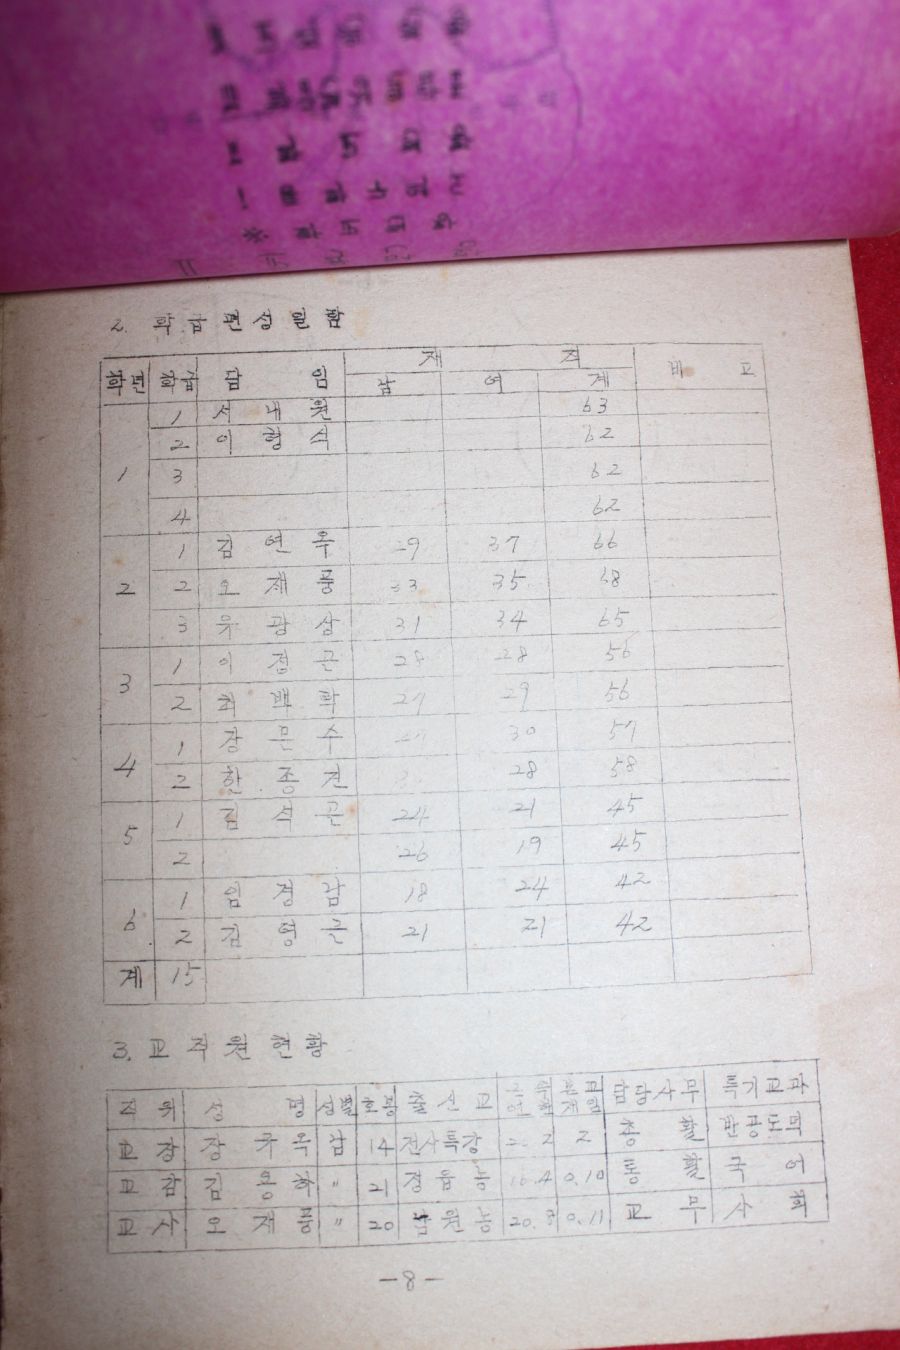 2. 학급편성일람
재 적
학년 학급 담 임 남 여 계 비 고
1 1 서내원 63
2 이형석 62
3 62
4 62
2 1 김연옥 29 37 66
2 오재풍 33 35 68
3 유광상 31 34 65
3 1 이정근 28 28 56
2 최백학 27 29 56
4 1 장문수 27 30 57
2 한종건 28 58
5 1 김석곤 24 21 45
2 26 19 45
6 1 임경남 18 24 42
2 김영근 21 21 42
계 15
3. 교직원현황
직위 성 명 성별 호봉 출신교 담당사무 특기교과
교장 장규옥 남 14 전사특강 2 총활 반공도덕
교감 김용하 〃 21 정읍농 0.10 통활 국어
교사 오재풍 〃 20 남원농 20. 0.11 교무 사회
-8-